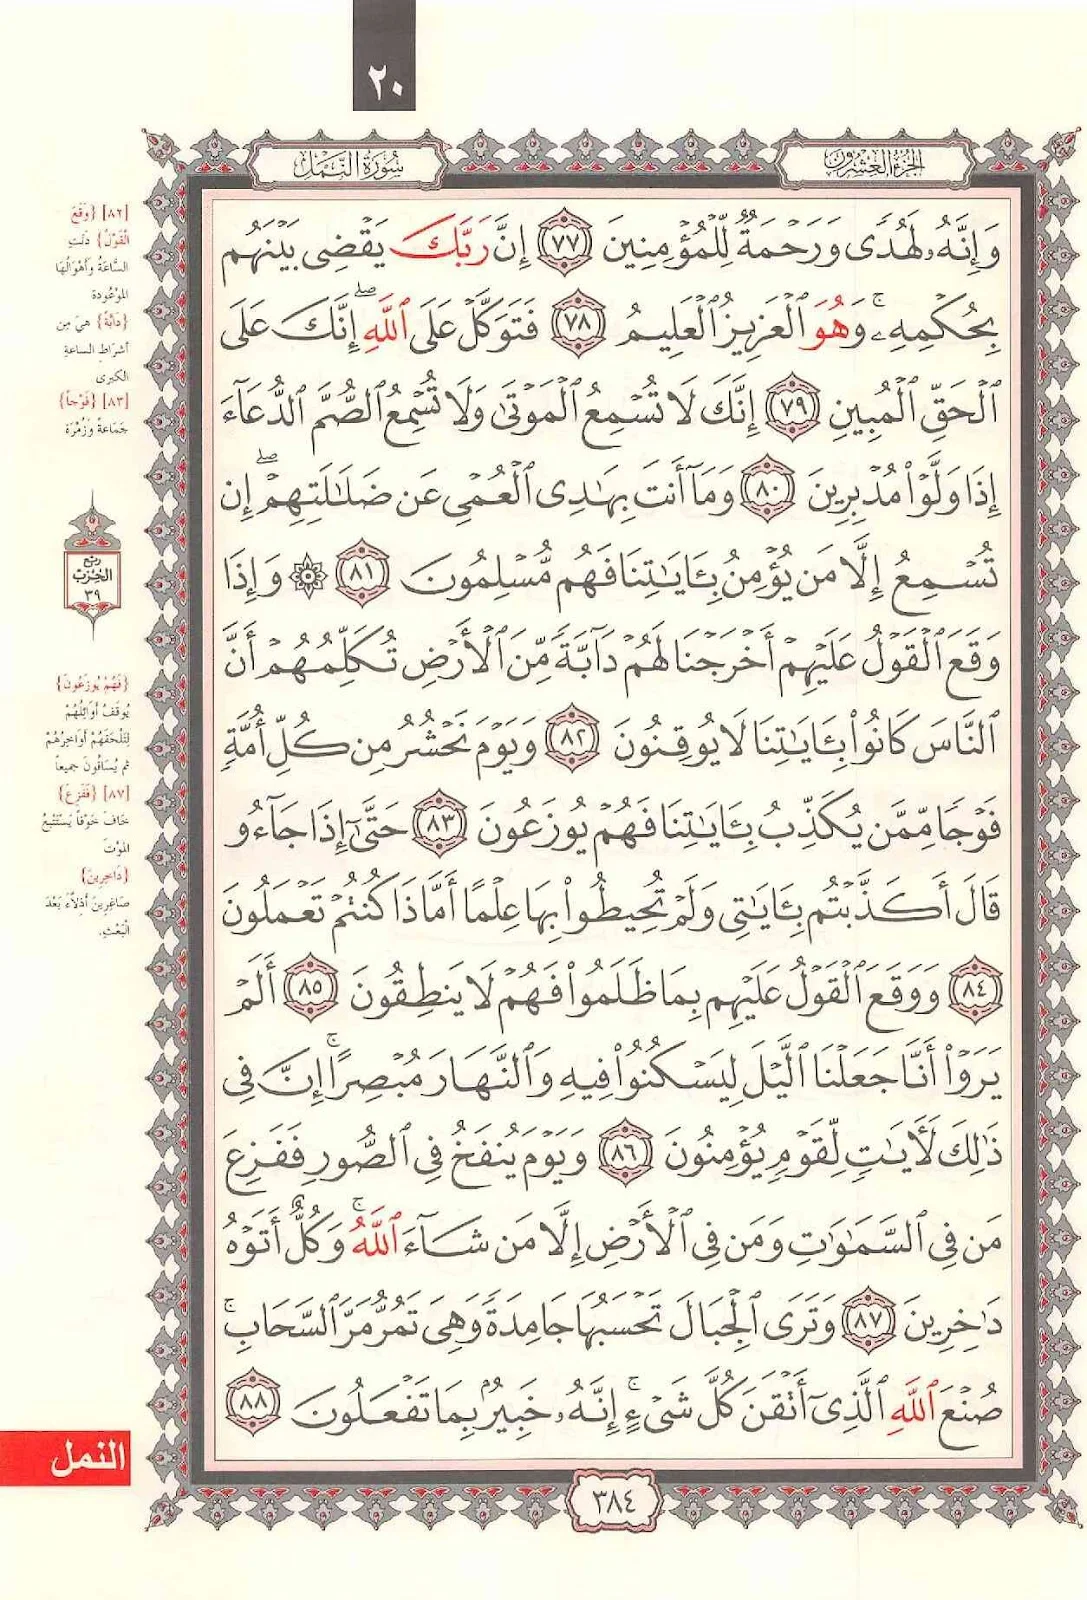 ٢٠
الجزء العشرون
سورة النمل
وَإِنَّهُۥ لَهُدًى وَرَحْمَةٌ لِّلْمُؤْمِنِينَ ٧٧ إِنَّ رَبَّكَ يَقْضِى بَيْنَهُم
بِحُكْمِهِۦ ۚ وَهُوَ ٱلْعَزِيزُ ٱلْعَلِيمُ ٧٨ فَتَوَكَّلْ عَلَى ٱللَّهِ ۖ إِنَّكَ عَلَى
ٱلْحَقِّ ٱلْمُبِينِ ٧٩ إِنَّكَ لَا تُسْمِعُ ٱلْمَوْتَىٰ وَلَا تُسْمِعُ ٱلصُّمَّ ٱلدُّعَآءَ
إِذَا وَلَّوْا۟ مُدْبِرِينَ ٨٠ وَمَآ أَنتَ بِهَـٰدِى ٱلْعُمْىِ عَن ضَلَـٰلَتِهِمْ ۖ إِن
تُسْمِعُ إِلَّا مَن يُؤْمِنُ بِـَٔايَـٰتِنَا فَهُم مُّسْلِمُونَ ٨١ ۞ وَإِذَا
وَقَعَ ٱلْقَوْلُ عَلَيْهِمْ أَخْرَجْنَا لَهُمْ دَآبَّةً مِّنَ ٱلْأَرْضِ تُكَلِّمُهُمْ أَنَّ
ٱلنَّاسَ كَانُوا۟ بِـَٔايَـٰتِنَا لَا يُوقِنُونَ ٨٢ وَيَوْمَ نَحْشُرُ مِن كُلِّ أُمَّةٍ
فَوْجًا مِّمَّن يُكَذِّبُ بِـَٔايَـٰتِنَا فَهُمْ يُوزَعُونَ ٨٣ حَتَّىٰٓ إِذَا جَآءُو
قَالَ أَكَذَّبْتُم بِـَٔايَـٰتِى وَلَمْ تُحِيطُوا۟ بِهَا عِلْمًا أَمَّاذَا كُنتُمْ تَعْمَلُونَ
٨٤ وَوَقَعَ ٱلْقَوْلُ عَلَيْهِم بِمَا ظَلَمُوا۟ فَهُمْ لَا يَنطِقُونَ ٨٥ أَلَمْ
يَرَوْا۟ أَنَّا جَعَلْنَا ٱلَّيْلَ لِيَسْكُنُوا۟ فِيهِ وَٱلنَّهَارَ مُبْصِرًا ۚ إِنَّ فِى
ذَٰلِكَ لَـَٔايَـٰتٍ لِّقَوْمٍ يُؤْمِنُونَ ٨٦ وَيَوْمَ يُنفَخُ فِى ٱلصُّورِ فَفَزِعَ
مَن فِى ٱلسَّمَـٰوَٰتِ وَمَن فِى ٱلْأَرْضِ إِلَّا مَن شَآءَ ٱللَّهُ ۚ وَكُلٌّ أَتَوْهُ
دَٰخِرِينَ ٨٧ وَتَرَى ٱلْجِبَالَ تَحْسَبُهَا جَامِدَةً وَهِىَ تَمُرُّ مَرَّ ٱلسَّحَابِ ۚ
صُنْعَ ٱللَّهِ ٱلَّذِىٓ أَتْقَنَ كُلَّ شَىْءٍ ۚ إِنَّهُۥ خَبِيرٌۢ بِمَا تَفْعَلُونَ ٨٨
٣٨٤
[٨٢] {وَقَعَ
القَوْلُ} دَنَتِ
السَّاعَةُ وَأَهْوَالُهَا
المَوْعُودة
{دَابَّةً} هيَ مِن
أشراطِ الساعةِ
الكبرى
[٨٣] {فَوْجاً}
جَمَاعَةً وَزُمْرَة
ربع
الحزب
٣٩
{فَهُمْ يُوزَعُونَ}
يُوقَفُ أَوَائِلُهُمْ
لِتَلْحَقَهُمْ أَوَاخِرُهُمْ
ثم يُسَاقُونَ جميعاً
[٨٧] {فَفَزِعَ}
خَافَ خَوْفاً يَسْتَتْبِعُ
المَوْتَ
{دَاخِرِينَ}
صَاغِرِينَ أذِلّاءَ بَعْدَ
الْبَعْثِ.
النمل